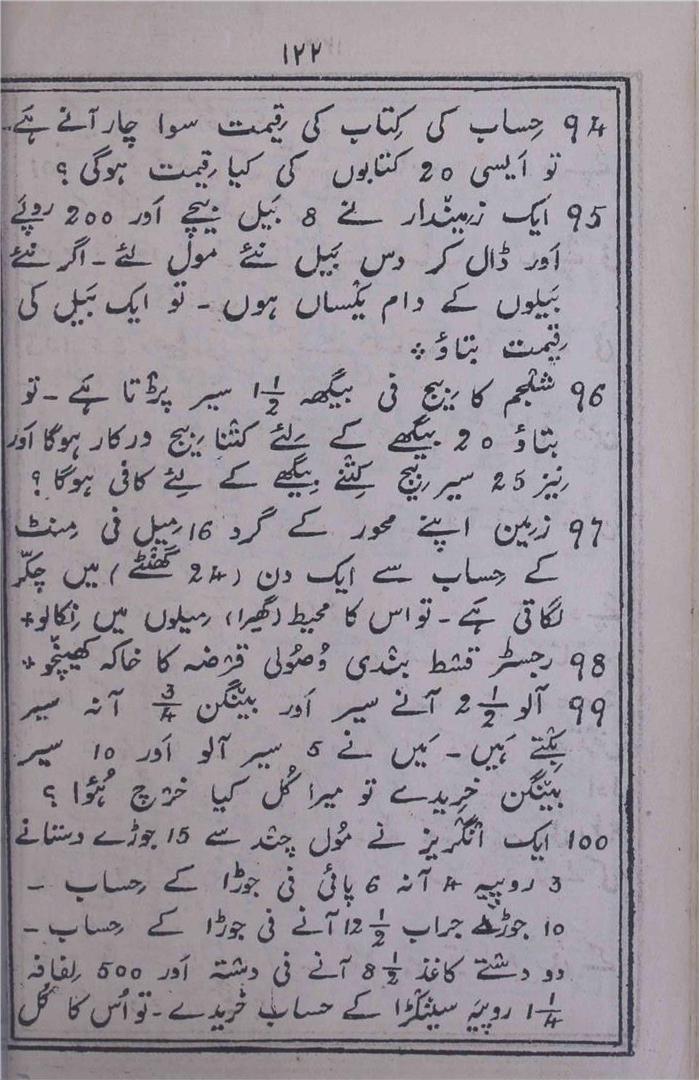 ۱۲۲
94 حِساب کی کِتاب کی قِیمت سوا چار آنے ہَے۔
تو اَیسی 20 کتابوں کی کیا قِیمت ہوگی ؟
95 ایک زمِیندار نے 8 بَیل بیچے اَور 200 روپَے
اَور ڈال کر دس بَیل نئے مول لئے ۔ اگر نئے
بَیلوں کے دام یکساں ہوں ۔ تو ایک بَیل کی
قِیمت بتاؤ ÷
96 شلجم کا بِیج فی بِیگھہ 1 1/2 سیر پڑتا ہَے ۔ تو
بتاؤ 20 بِیگھے کے لِئے کتنا بِیج درکار ہوگا اَور
نِیز 25 سیر بِیج کِتنے بِیگھے کے لِئے کافی ہوگا ؟
97 زمِین اپنے محور کے گرد 16 مِیل فی مِنٹ
کے حِساب سے ایک دن (24 گھنٹے) میں چکّر
لگاتی ہَے ۔ تو اس کا محیط (گھیرا) مِیلوں میں نِکالو +
98 رجسٹر قسط بندی وُصُولی قرضہ کا خاکہ کھینچو +
99 آلو 2 1/2 آنے سیر اَور بَینگن 3/4 آنہ سیر
بِکتے ہَیں ۔ مَیں نے 5 سیر آلو اَور 10 سیر
بَینگن خرِیدے تو میرا کُل کیا خرچ ہُئوا ؟
100 ایک انگریز نے مُول چند سے 15 جوڑے دستانے
3 روپیہ 4 آنہ 6 پائی فی جوڑا کے حِساب ۔
10 جوڑے جراب 12 1/2 آنے فی جوڑا کے حِساب ۔
دو دستے کاغذ 8 1/2 آنے فی دستہ اَور 500 لِفافہ
1 1/4 روپیَہ سینکڑا کے حساب خریدے ۔ تو اُس کا کُل